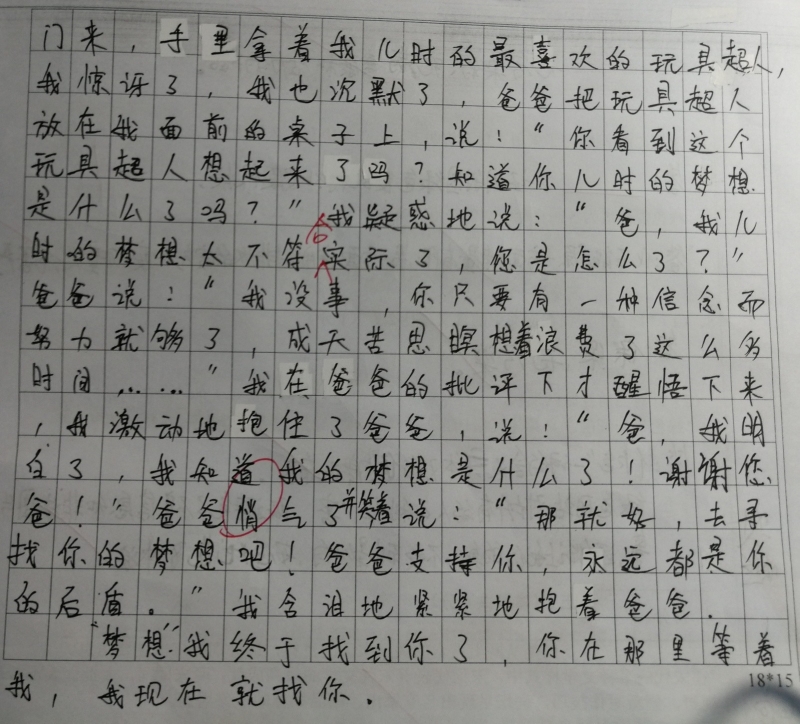 门来，手里拿着我儿时的最喜欢的玩具超人，
我惊讶了，我也沉默了，爸爸把玩具超人
放在我面前的桌子上，说：“你看到这个
玩具超人想起来了吗？知道你儿时的梦想
是什么了吗？”我疑惑地说：“爸，我儿
时的梦想太不符合实际了，您是怎么了？”
爸爸说：“我没事，你只要有一种信念而
努力就够了，成天苦思瞑想着浪费了这么多
时间……”我在爸爸的批评下才醒悟下来
，我激动地抱住了爸爸，说：“爸，我明
白了，我知道我的梦想是什么了！谢谢您
爸！”爸爸悄气了并笑着说：“那就好，去寻
找你的梦想吧！爸爸支持你，永远都是你
的后盾。”我含泪地紧紧地抱着爸爸.
“梦想”我终于找到你了，你在那里等着
我，我现在就找你.
18*15